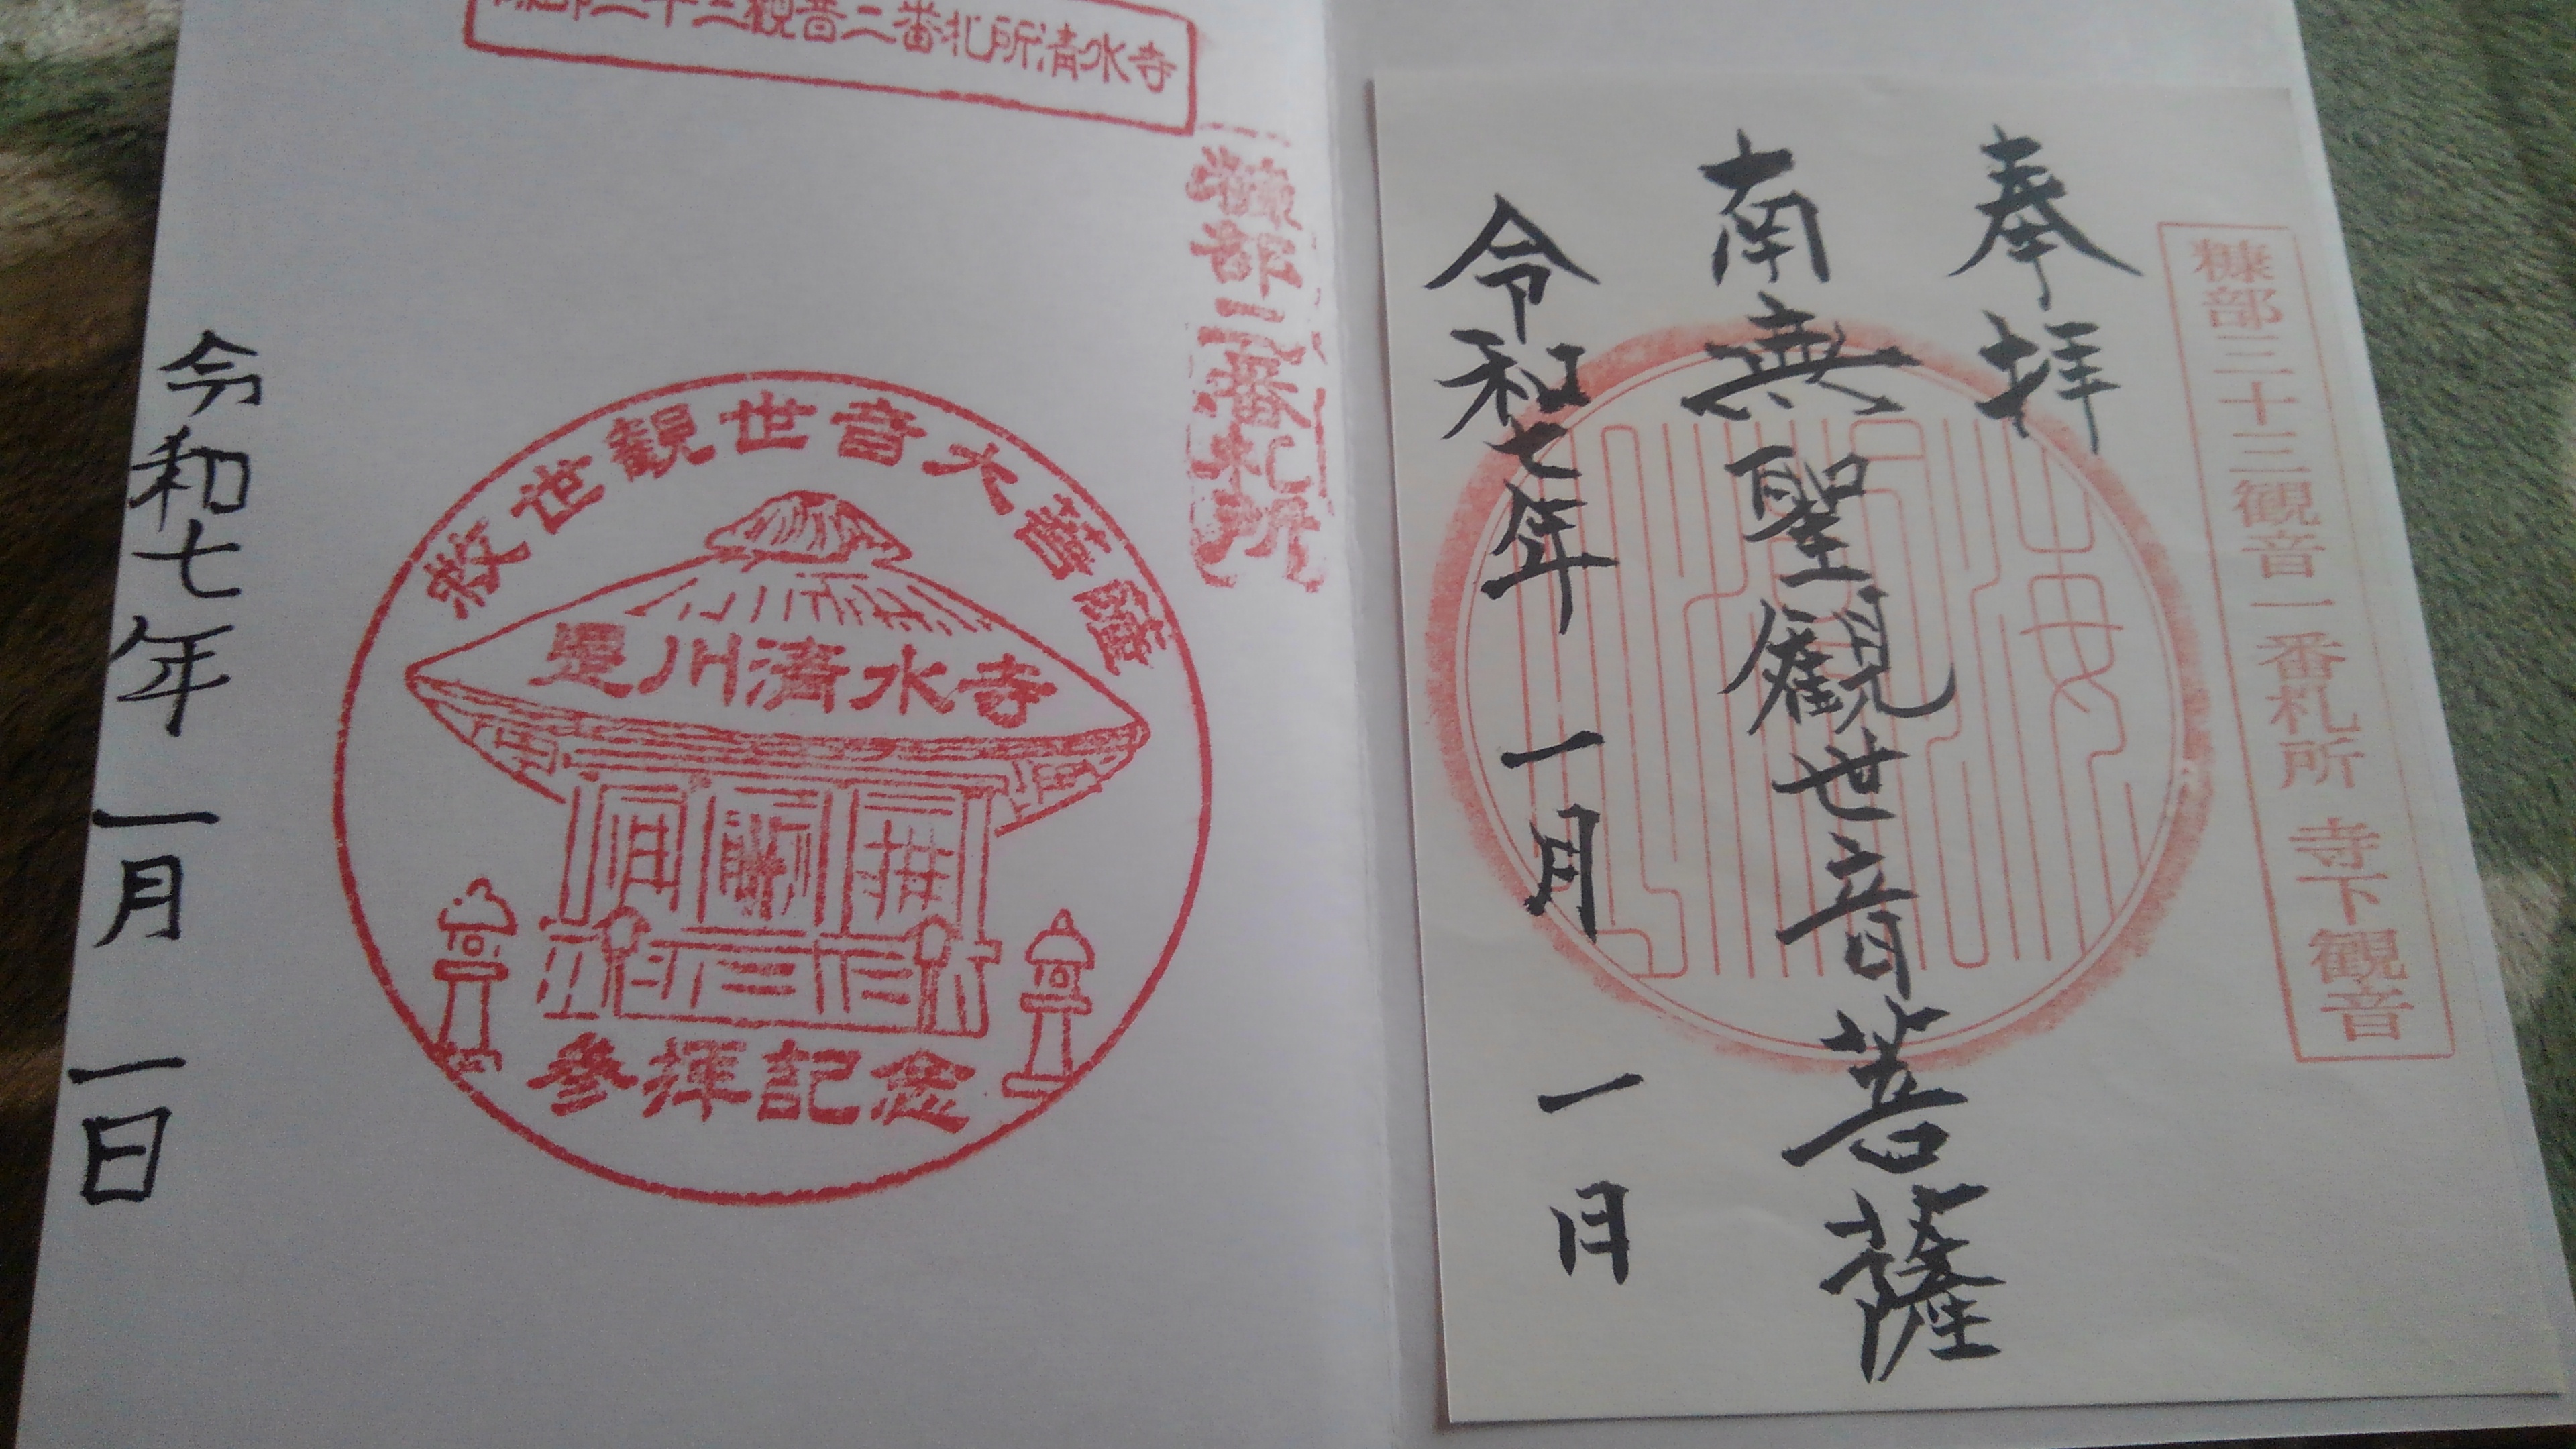 糠部三十三観音一番札所 寺下観音
奉拝
南無聖観世音菩薩
令和七年 一月 一日
糠部三十三観音二番札所清水寺
糠部二番札所
救世観世音大菩薩
是川清水寺
参拝記念
令和七年 一月 一日